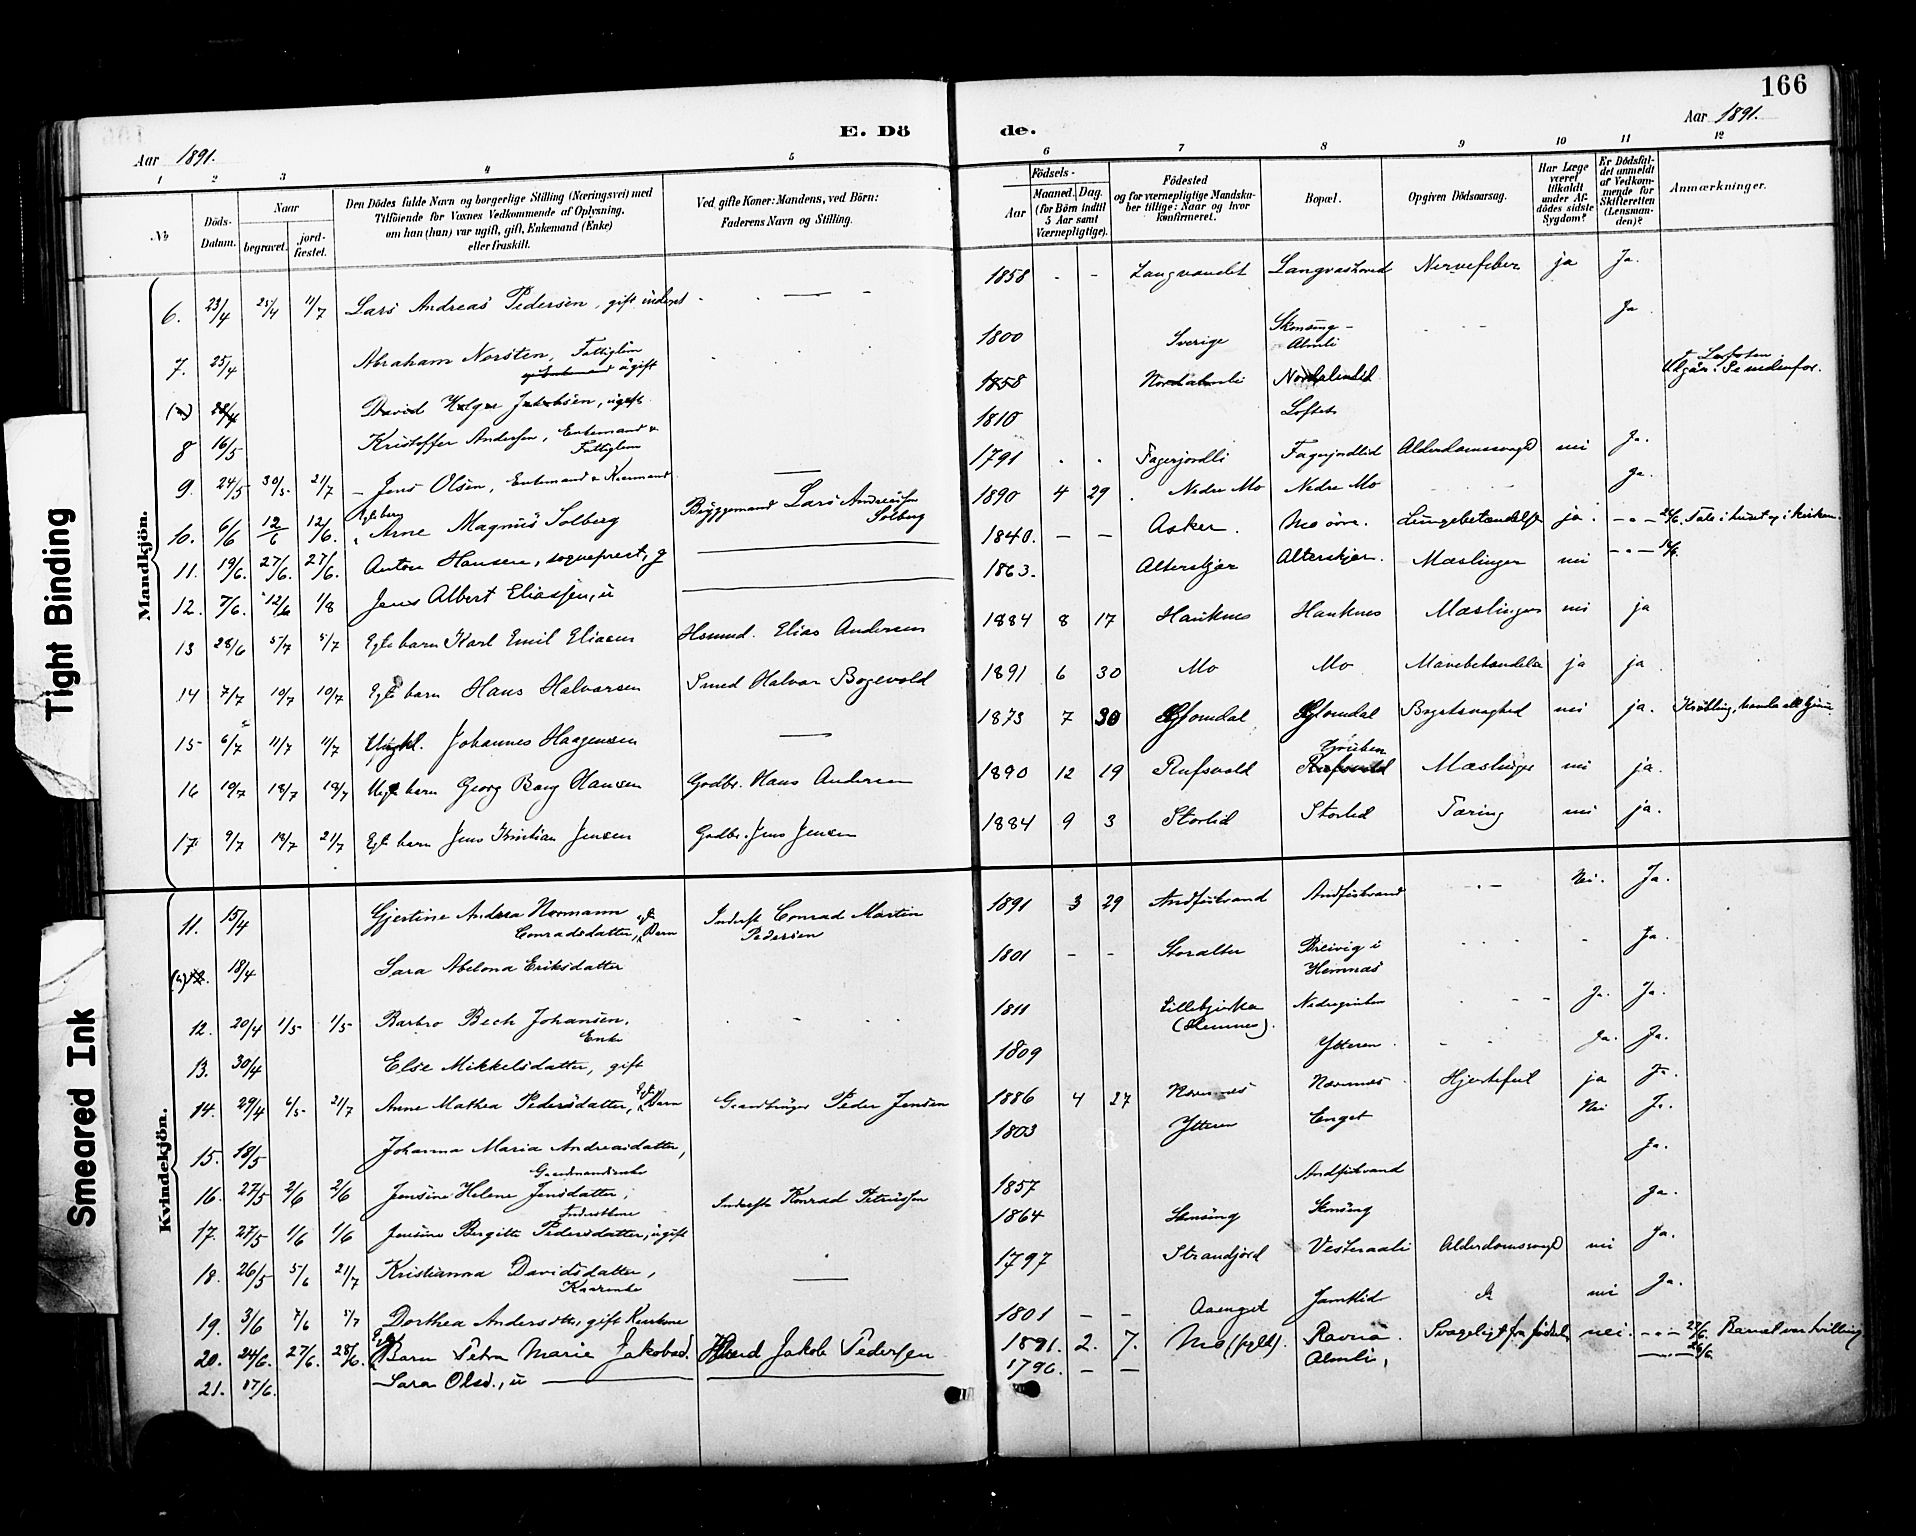 166
E. Dö
de.
Aar 1891.
Aar 1891.
1 2 3 4 5 6 7 8 9 10 11 12
No
Döds-Datum.
Naar
begravet.
jord-fæstet.
Den Dödes fulde Navn og borgerlige Stilling (Næringsvei) med
Tilföiende for Voxnes Vedkommende af Oplysning,
om han (hun) var ugift, gift, Enkemand (Enke)
eller fraskilt.
Ved gifte Koner: Mandens, ved Börn:
Faderens Navn og Stilling.
Födsels-
Aar
Maaned. Dag.
(for Börn indtil
5 Aar samt
Værnepligtige).
Födested
og for værnepligtige Mandska-
ber tillige: Naar og hvor
konfirmeret.
Bopæl.
Opgiven Dödsaarsag.
Har Læge
været
tilkaldt
under Af-
dödes sidste
Sygdom?
Er Dödsfal-
det anmeldt
af Vedkom-
mende for
Skifteretten
(Lensman-
den)?
Anmærkninger.
Mandkjön.
6. 23/4 25/4 11/7 Lars Andreas Pedersen, gift inderst 1858 - - Langvandet Nervefeber ja Ja.
7. 25/4 Abraham Norsten, Fattiglem ugift 1800 Sverige Skonseng-Almli Ja
David Helge Jakobsen, ugift 1858 Nordalmli
8 16/5 Kristoffer Andersen, Enkemand & Fattiglem 1810
9. 24/5 30/5 21/7 Jens Olsen, Enkemand & Kaarmand 1791 Fagerjordli Fagerjordlid Alderdomssvagd nei Ja.
10. 6/6 12/6 12/6. Ægte barn Arne Magnus Solberg Bryggemand Lars Andreassen Solberg 1890 4 29 Nedre Mo Nedre Mo Ja.
11. 19/6. 27/6. 27/6. Anton Hansen, sogneprest, g 1840. - - Asker. Mo övre. Lungebetændelse ja. Tale i huset og i kirken.
12. 7/6. 12/6 1/8 Jens Albert Eliassen, u 1863. Alterskjær Alterskjær. Mæslinger nei
13 28/6 5/7 5/7 Egte barn Karl Emil Eliasen Hsmnd. Elias Andersen 1884 8 17 Hauknes Hauknes Mæslinger nei ja
14 7/7 10/7 10/7 Egte barn Hans Halvorsen Smed Halvor Bogevold 1891 6 30 Mo Mo Mavebetændelse ja ja
15 6/7 11/7 11/7 Ungkl. Johannes Haagensen 1873 7 30 Glomdal Glomdal Brystsvaghed nei ja.
16 10/7 18/7 18/7 Uegte barn Georg Bang Hansen Gadbr. Hans Andersen 1890 12 19 Rufsvold Mæslinger nei ja.
17 9/7 18/7 21/7 Egte barn Jens Kristian Jensen Gadbr. Jens Jensen 1884 9 3 Storlid Storlid Tæring nei ja.
Kvindekjön.
11. 15/4 Gjertine Andrea Normann Conradsdatter, Barn Inderst Conrad Martin Pedersen 1891 3 29 Andfiskvand Andfiskvand Nei. Ja.
18/4 Sara Abelona Eriksdatter 1801 - - Storalter Breivig i Hemnæs Ja.
12. 20/4 1/5 1/5 Barbro Bech Johansen, Enke 1811 Lillebjerka (Hemnes). Ja. Ja.
13. 30/4 Else Mikkelsdatter, gift 1809 Ytteren Ja. Ja.
14. 29/4 6/5 21/7 Anne Mathea Pedersdatter, Barn Gaardbruger Peder Jensen 1886 4 27 Næsnæs Næsnæs Hjertefeil ja Ja.
15. 18/5 Johanna Maria Andreasdatter, Gaardmandsenke 1803 Ytteren Enget Nei Ja.
16. 27/5 2/6 2/6 Jensine Helene Jensdatter, Inderstkone Inderst Konrad Petrussen 1857 Andfiskvand Ja.
17. 27/5 1/6 1/6 Jensine Birgitte Pedersdatter, ugift 1864 Skonseng Skonseng Ja.
18. 26/5 5/6 21/7 Kristianna Davidsdatter, Kaarenke 1797 Strandjord Vesteraali Alderdomssvagd nei Ja.
19. 3/6 7/6 5/7 Dorthea Andersdtter, gift 1801 - - Aaenget Jamtlid nei Ja.
20. 24/6. 27/6. 28/6. Barn Petra Marie Jakobsd. Jakob Pedersen 1891. 2. 7. Mo Ravnå. Svageligt fra fødsel nei. Barnet var tvilling
21. 17/6. Sara Olsd., u 1796. - - Almli,
Tight Binding
Smeared Ink